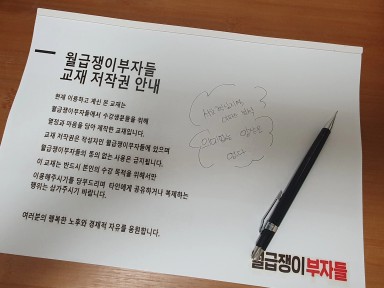 월급쟁이부자들
교재 저작권 안내
현재 이용하고 계신 본 교재는
월급쟁이부자들에서 수강생분들을 위해
열정과 마음을 담아 제작한 교재입니다.
교재 저작권은 작성자인 월급쟁이부자들에 있으며
월급쟁이부자들의 동의 없는 사용은 금지됩니다.
이 교재는 반드시 본인의 수강 목적을 위해서만
이용해주시기를 당부드리며 타인에게 공유하거나 복제하는
행위는 삼가주시기 바랍니다.
여러분의 행복한 노후와 경제적 자유를 응원합니다.
없다
월급쟁이부자들